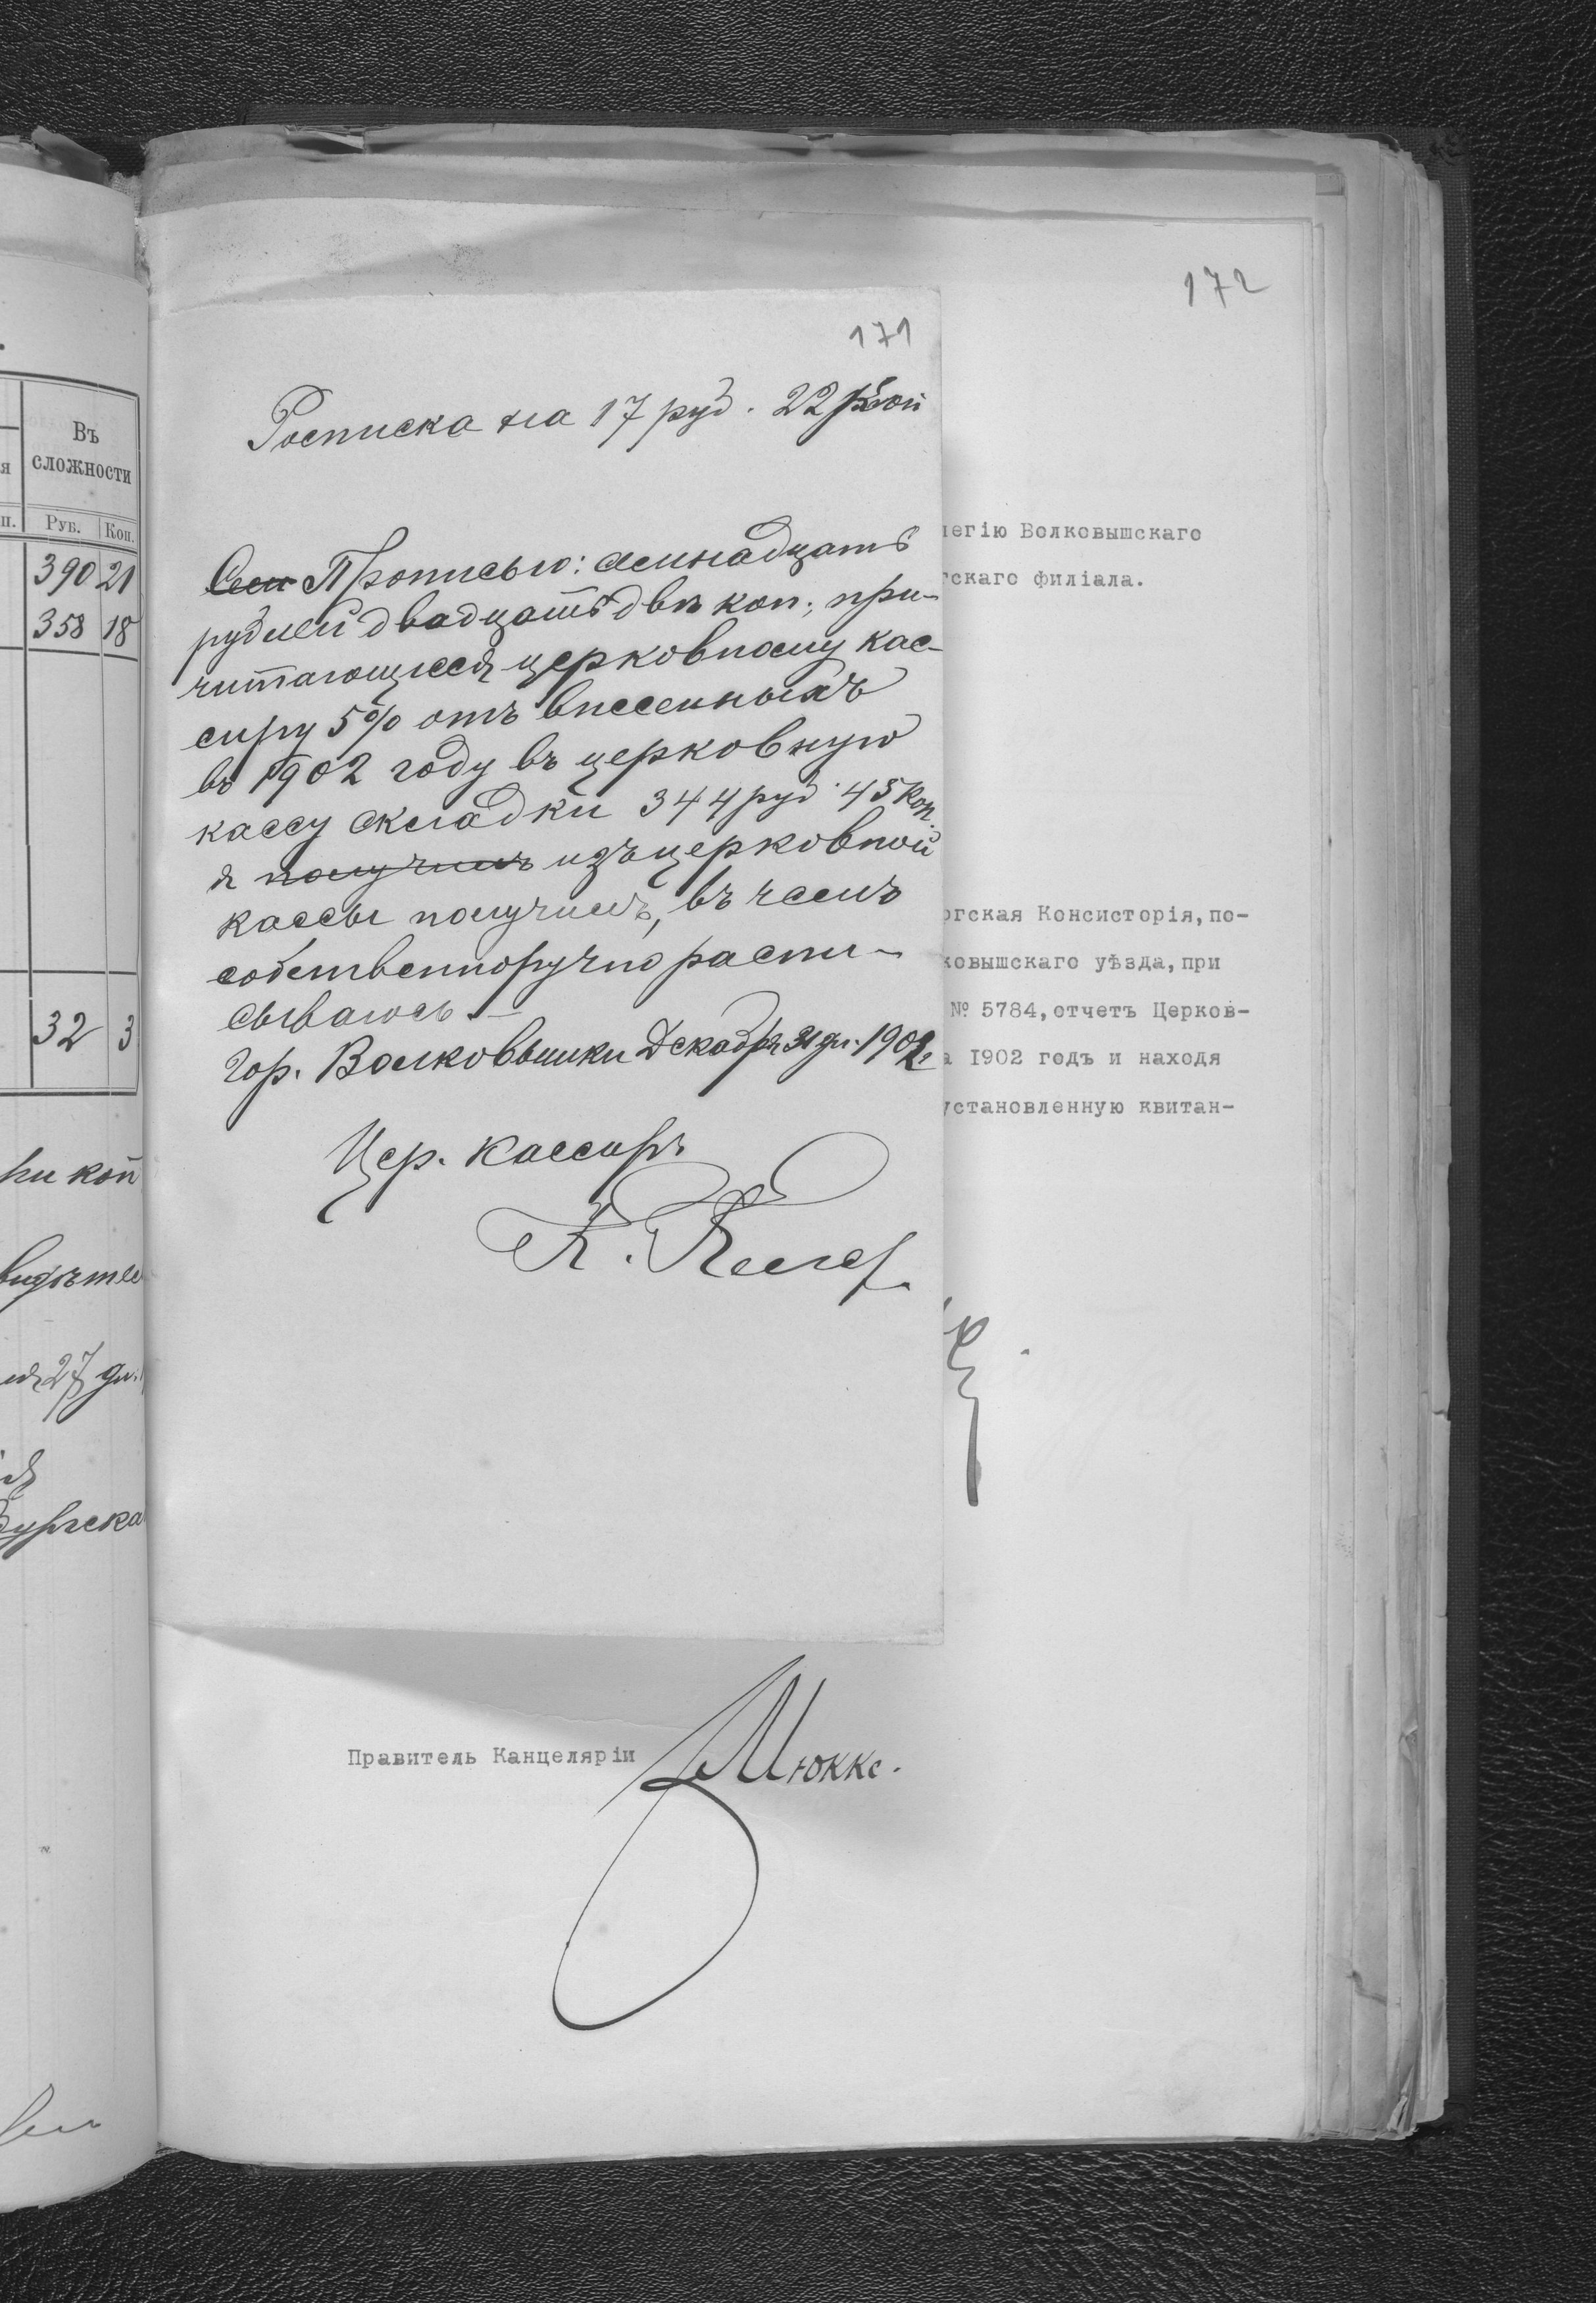 Въ
сложности
Руб. Коп.
390 21
358 18
32 3
ри коп
27 дн.
172
171
Росписка на 17 руб. 22 коп
Сем Прописью: семнадцать
рублей двадцать двѣ коп., при-
читающіеся церковному кас-
сиру 5% отъ внесенныхъ
въ 1902 году въ церковную
кассу складки 344 руб. 45 коп.
я получилъ изъ церковной
кассы получилъ, въ чемъ
собственноручно распи-
сываюсь.
Гор. Волковышки Декабря 31 дн. 1902 г.
Цер. кассиръ
легію Волковышскаго
гскаго филіала.
ргская Консисторія, по-
ковышскаго уѣзда, при
№ 5784, отчетъ Церков-
а 1902 годъ и находя
установленную квитан-
Правитель Канцеляріи Мюккс.